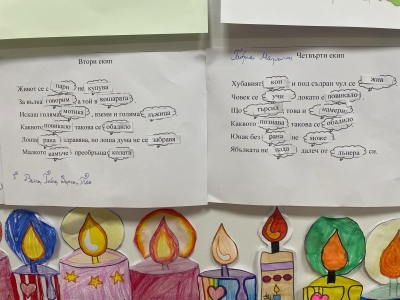 Втори екип
Живот се с пари не купува
За вълка говорим а той в кошарата
Искаш голяма мотика, вземи и голяма лъжица
Каквото повикало такова се обадило
Лоша рана здравява, но лоша дума не се забравя
Малкото камъче преобръща колата
Четвърти екип
Хубавият кон и под съдран чул се
Човек се учи докато
Що търсил това и намерил
Каквото такова се обадило
Юнак без рана не може
Ябълката не пада далеч от дънера си.